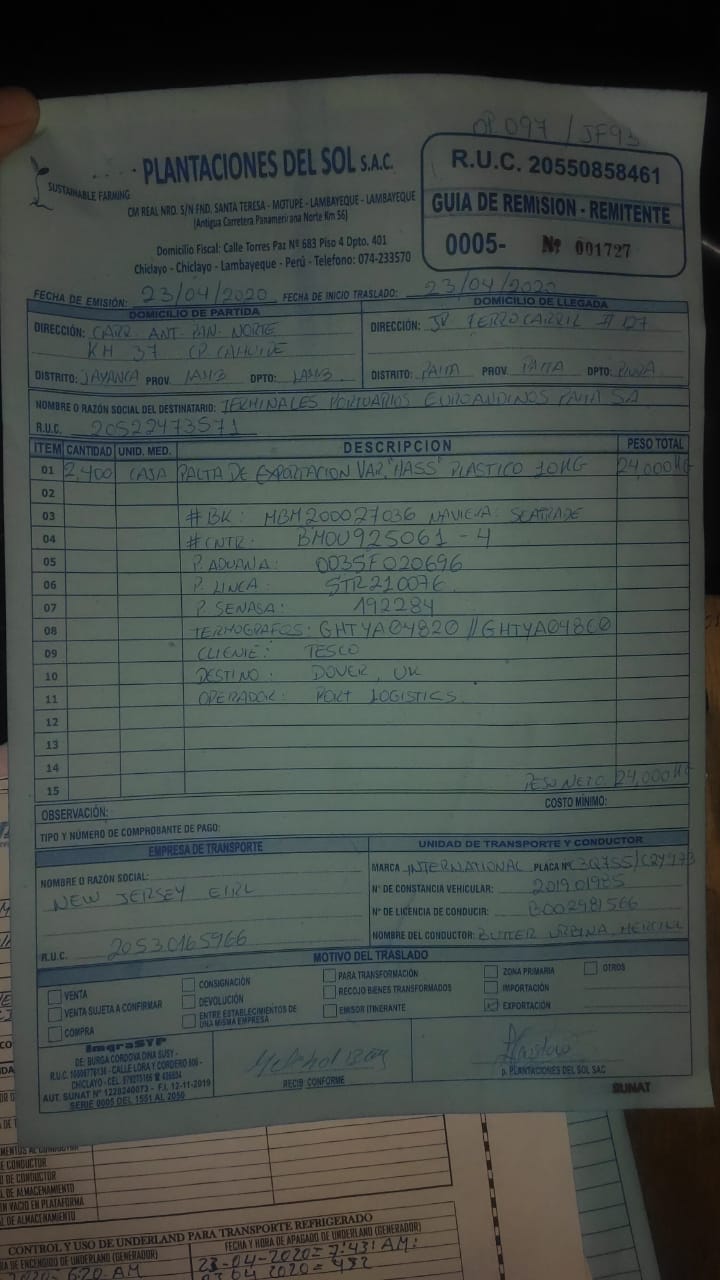 OP 097 / JF93
SUSTAINABLE FARMING
PLANTACIONES DEL SOL S.A.C.
CM REAL NRO. S/N FND. SANTA TERESA - MOTUPE - LAMBAYEQUE - LAMBAYEQUE
(Antigua Carretera Panamericana Norte Km 56)
Domicilio Fiscal: Calle Torres Paz Nº 683 Piso 4 Dpto. 401
Chiclayo - Chiclayo - Lambayeque - Perú - Telefono: 074-233570
R.U.C. 20550858461
GUIA DE REMISION - REMITENTE
0005- Nº 001727
FECHA DE EMISIÓN: 23/04/2020 FECHA DE INICIO TRASLADO: 23/04/2020
DOMICILIO DE PARTIDA
DIRECCIÓN: CARR ANT. PAN. NORTE
KM 37 CP CAHUIDE
DISTRITO: JAYANCA PROV. LAMB DPTO: LAMB.
DOMICILIO DE LLEGADA
DIRECCIÓN: JR FERROCARRIL # 127
DISTRITO: PAITA PROV. PAITA DPTO: PIURA
NOMBRE O RAZÓN SOCIAL DEL DESTINATARIO: TERMINALES PORTUARIOS EUROANDINOS PAITA SA
R.U.C. 20522473571
ITEM CANTIDAD UNID. MED. DESCRIPCION PESO TOTAL
01 2,400 CAJA PALTA DE EXPORTACION VAR. "HASS" PLASTICO 10KG 24,000KG
02
03 # BK: MBM200027036 NAVIERA: SEATRADE
04 # CNTR: BMOU925061-4
05 P. ADUANA: 003SF020696
06 P. LINEA: STR210076
07 P. SENASA: 192284
08 TERMOGRAFOS: GHTYA04820 // GHTYA048C0
09 CLIENTE: TESCO
10 DESTINO: DOVER, UK
11 OPERADOR: PORT LOGISTICS.
12
13
14
15 PESO NETO: 24,000KG
OBSERVACIÓN: COSTO MÍNIMO:
TIPO Y NÚMERO DE COMPROBANTE DE PAGO:
EMPRESA DE TRANSPORTE
NOMBRE O RAZÓN SOCIAL:
NEW JERSEY EIRL
R.U.C. 20530165966
UNIDAD DE TRANSPORTE Y CONDUCTOR
MARCA INTERNATIONAL PLACA Nº
Nº DE CONSTANCIA VEHICULAR: 201901985
Nº DE LICENCIA DE CONDUCIR: B002981566
NOMBRE DEL CONDUCTOR: URBINA,
MOTIVO DEL TRASLADO
VENTA
VENTA SUJETA A CONFIRMAR
COMPRA
CONSIGNACIÓN
DEVOLUCIÓN
ENTRE ESTABLECIMIENTOS DE
UNA MISMA EMPRESA
PARA TRANSFORMACIÓN
RECOJO BIENES TRANSFORMADOS
EMISOR ITINERANTE
ZONA PRIMARIA
IMPORTACIÓN
EXPORTACIÓN
OTROS
ImgraSYP
DE: BURGA CORDOVA DINA SUSY -
CALLE LORA Y CORDERO
CHICLAYO
AUT. SUNAT Nº 1228240073 - F.I. 12-11-2019
SERIE 0005 DEL 1551 AL 2050
RECIBI CONFORME
p. PLANTACIONES DEL SOL SAC
SUNAT
DE CONDUCTOR
DE CONDUCTOR
L DE ALMACENAMIENTO
VACIO EN PLATAFORMA
L DE ALMACENAMIENTO
CONTROL Y USO DE UNDERLAND PARA TRANSPORTE REFRIGERADO
RA DE ENCENDIDO DE UNDERLAND (GENERADOR) FECHA Y HORA DE APAGADO DE UNDERLAND (GENERADOR)
6:20 AM 23-04-2020= 7:43 AM: